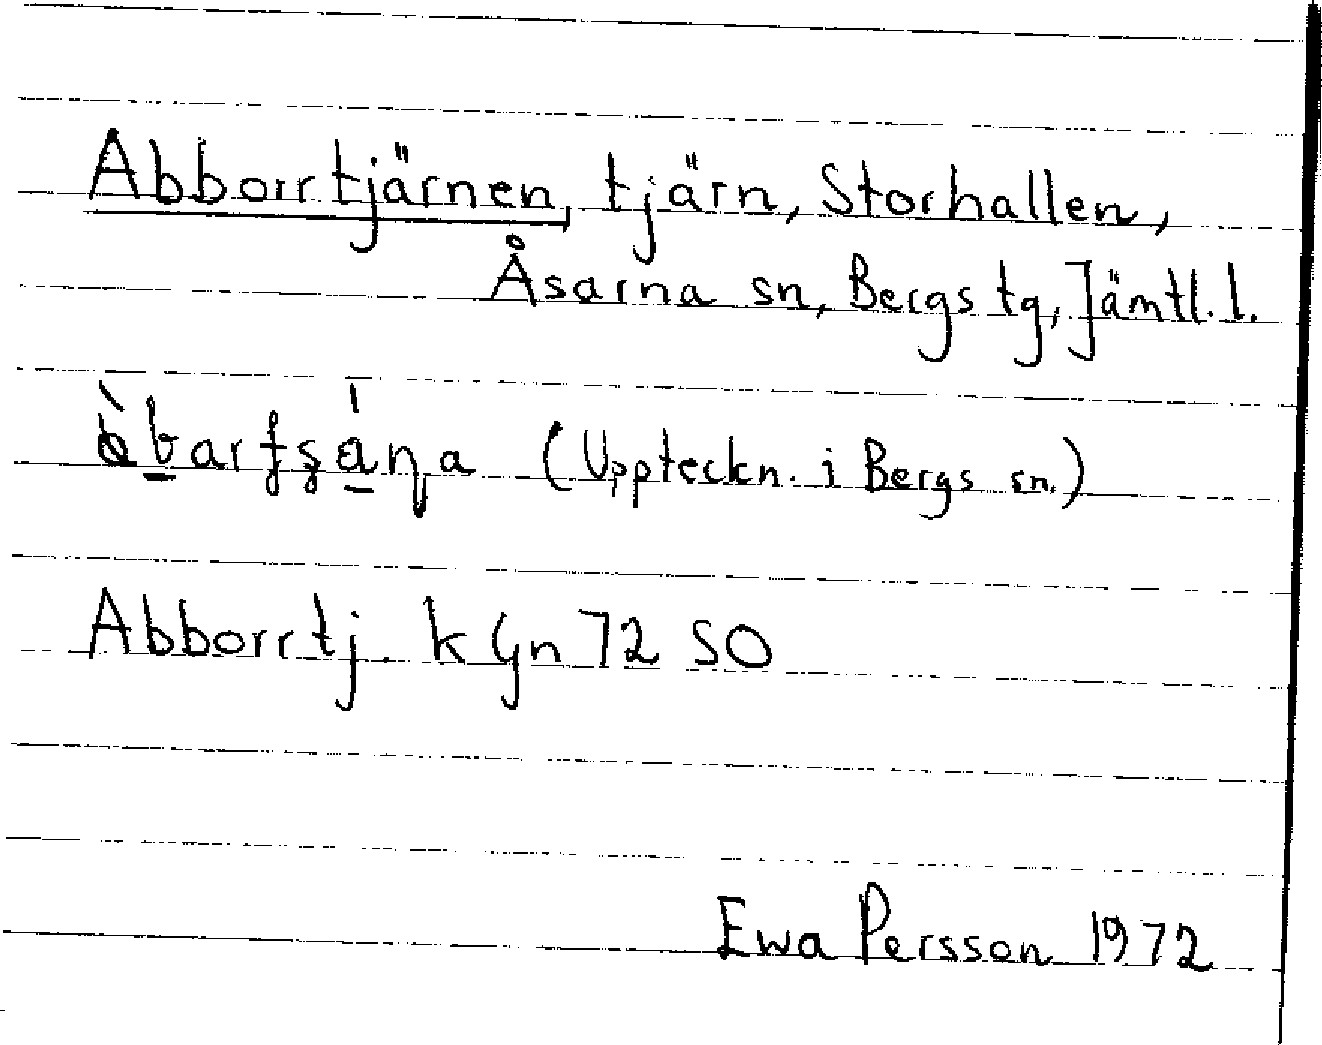 Abborrtjärnen, tjärn, Storhallen,
Åsarna sn, Bergs tg, Jämtl. l.
(Uppteckn. i Bergs sn.)
Abborrtj k Gn 72 SO
Ewa Persson 1972